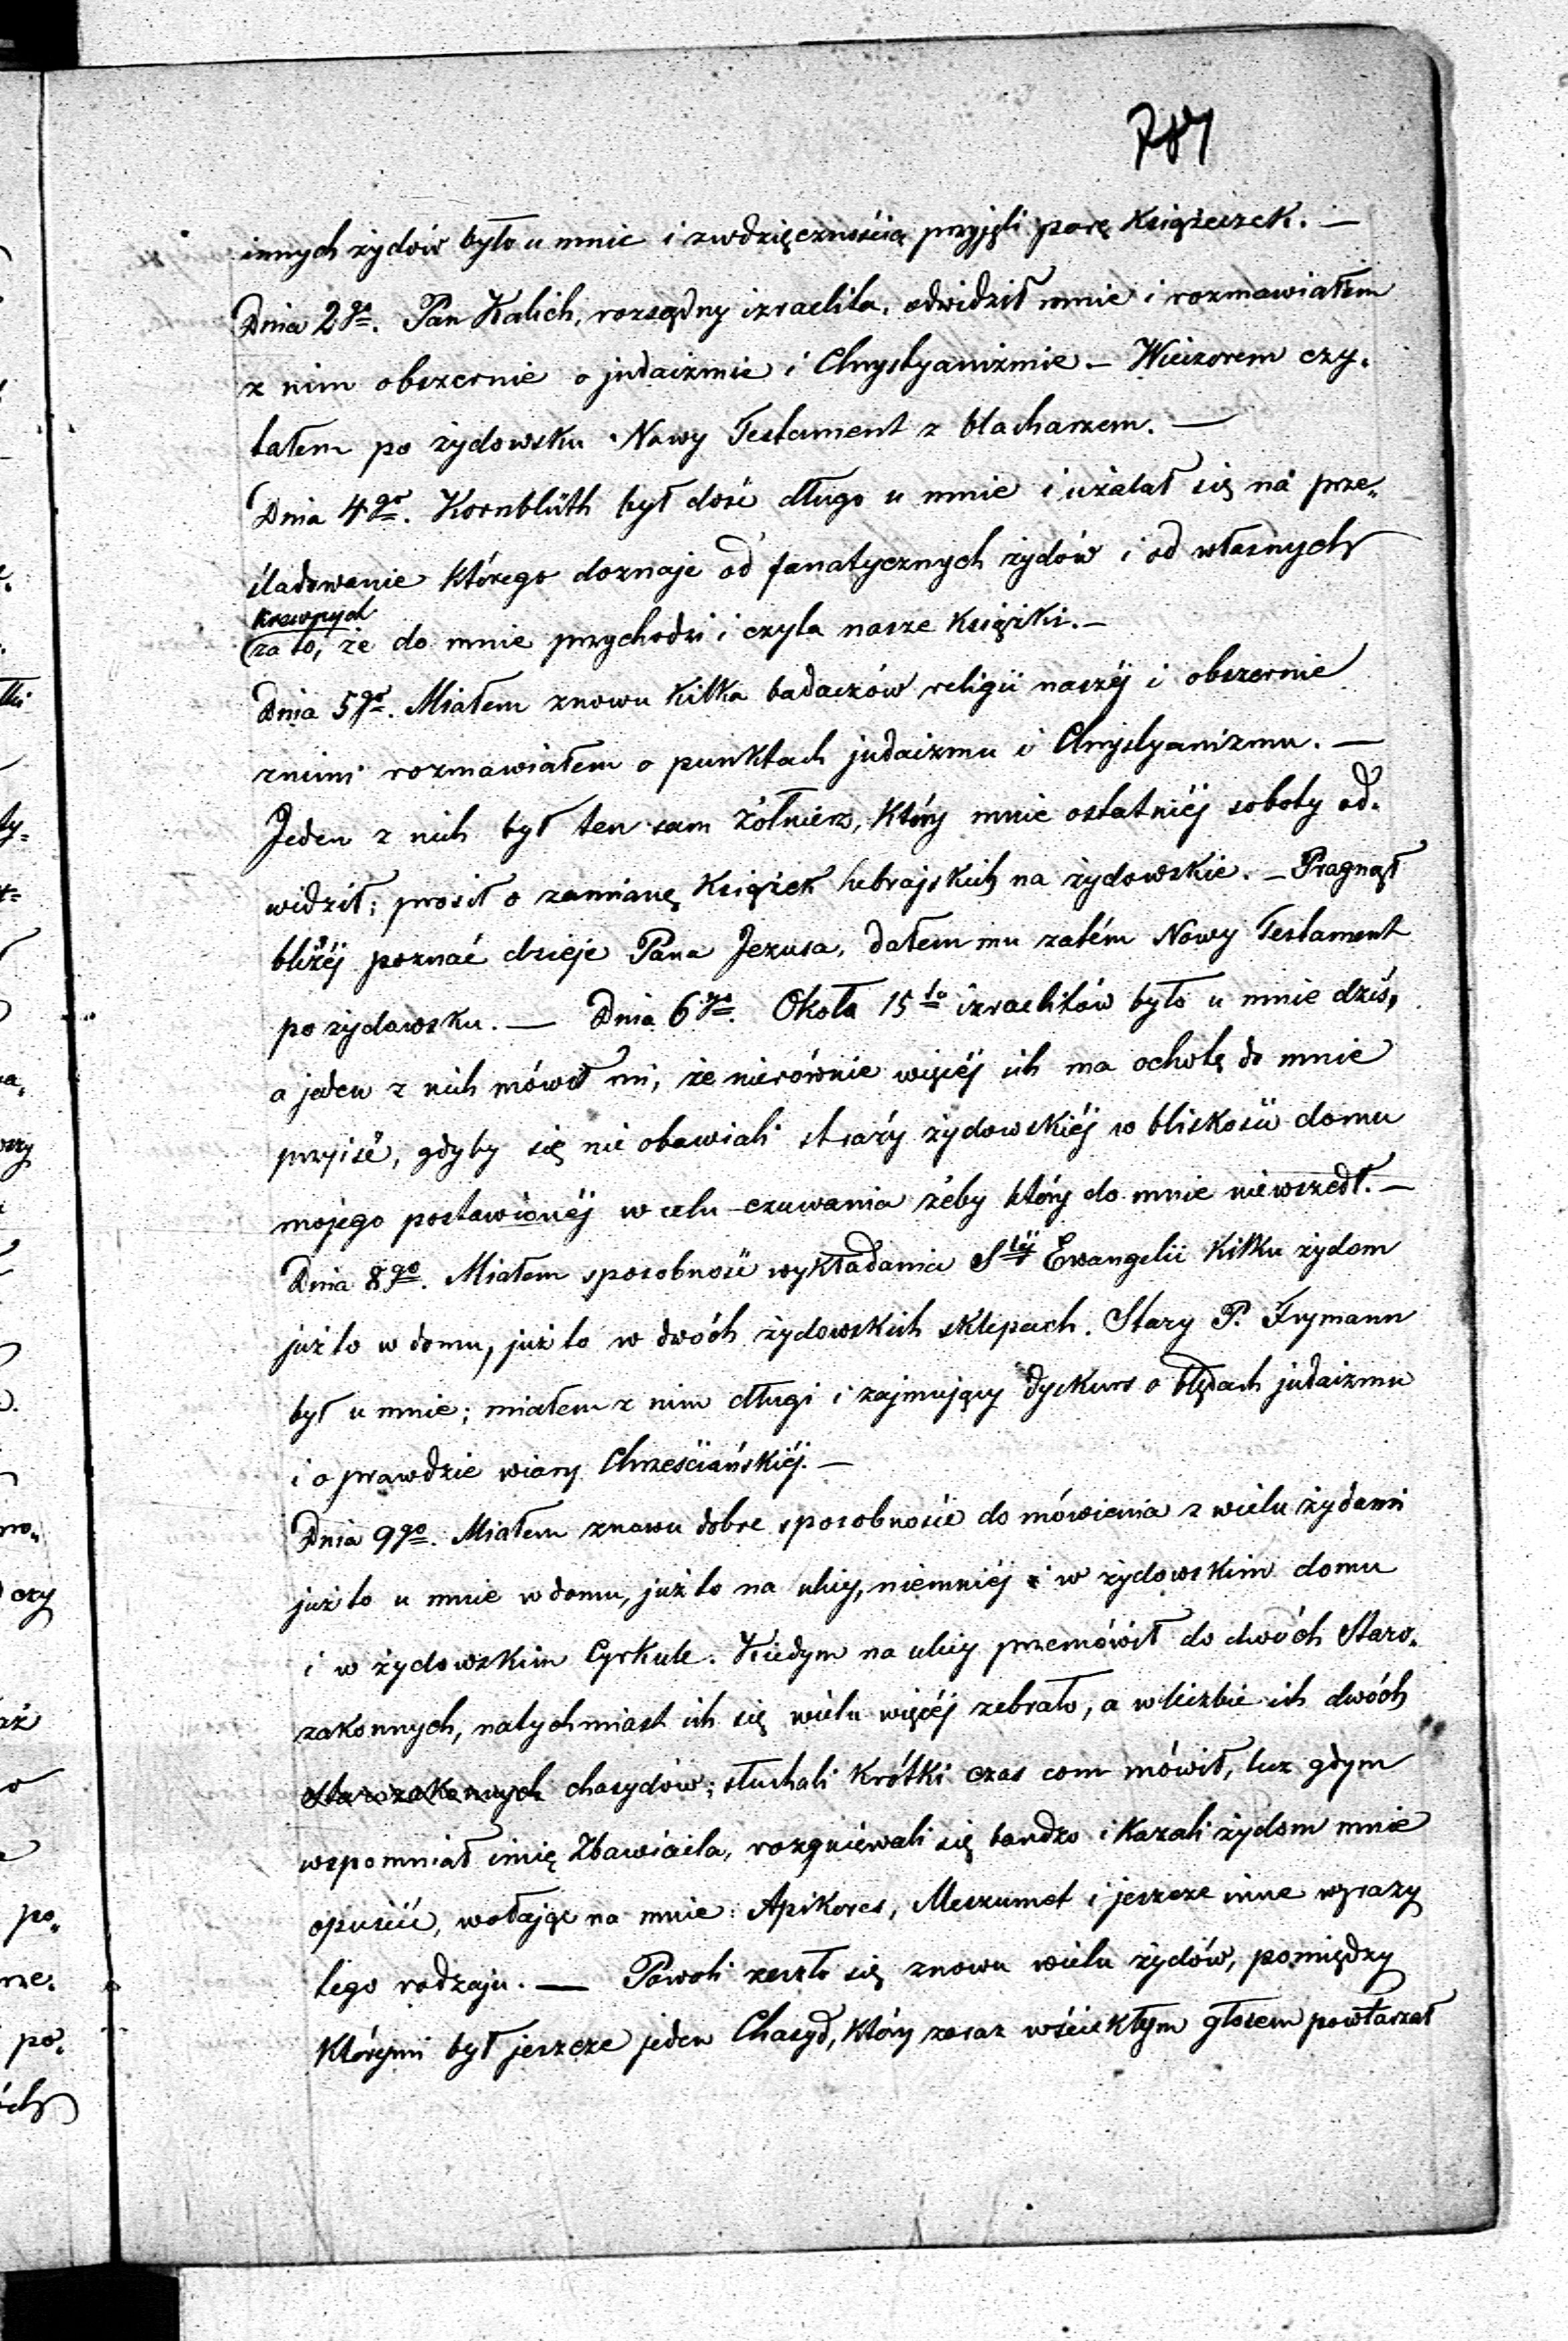 innych żydów było u mnie i zwdzięcznością przyjęli parę Książeczek. —
Dnia 2go. Pan Kalich, rozsądny izraelita, odwidził mnie i rozmawiałem
z nim obszernie o judaizmie i Chrystyanizmie. — Wieczorem czy-
tałem po żydowsku Nowy Testament z blacharzem. —
Dnia 4go. Kornblüth był dość długo u mnie i użalał się na prze-
śladowanie którego doznaje od fanatycznych żydów i od własnych
krewnych
za to, że do mnie przychodzi i czyta nasze Książki. —
Dnia 5go. Miałem znowu kilka badaczów religii naszéj i obszernie
znimi rozmawiałem o punktach judaizmu i Chrystyanizmu. —
Jeden z nich był ten sam żołnierz, który mnie ostatniéj soboty od-
widził; prosił o zamianę Książek hebrajskich na żydowskie. — Pragnął
bliżéj poznać dzieje Pana Jezusa, dałem mu zatém Nowy Testament
po żydowsku. — Dnia 6go. Około 15to izraelitów było u mnie dziś,
a jeden z nich mówił mi, że nierównie więcéj ich ma ochotę do mnie
przyiść, gdyby się nie obawiali straży żydowskiéj w bliskości domu
mojego postawionéj w celu czuwania żeby który do mnie niewszedł. —
Dnia 8go. Miałem sposobność wykładania Stéj Ewangelii kilku żydom
już to w domu, już to w dwóch żydowskich sklepach. Stary P. Frymann
był u mnie; miałem z nim długi i zajmujący dyskurs o błędach judaizmu
i o prawdzie wiary Chrześciańskiéj. —
Dnia 9go. Miałem znowu dobre sposobności do mówienia z wielu żydami
już to u mnie w domu, już to na ulicy, niemniéj i w żydowskim domu
i w żydowskim Cyrkule. Kiedym na ulicy przemówił do dwóch Staro-
zakonnych, natychmiast ich się wielu więcéj zebrało, a w liczbie ich dwóch
starozakonnych chasydów; słuchali krótki czas com mówił, lecz gdym
wspomniał imię Zbawiciela, rozgniewali się bardzo i kazali żydom mnie
opuścić, wołając na mnie: Apikores, Meszumet i jeszcze inne wyrazy
tego rodzaju. — Powoli zeszło się znowu wielu żydów, pomiędzy
którymi był jeszcze jeden Chasyd, który zaraz wściekłym głosem powtarzał